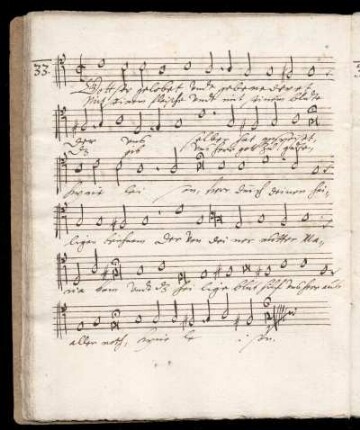 33.
Gott sey gelobet und gebenedeiet
Mit seinem fleische und mit seinem blute
der uns selber hat gespeiset,
Das gib
kyrie lei son, herr durch deinen hei,
ligen leichnam der von deiner mutter Ma,
ria kam und das hei lige blut hilf uns herr aus
aller noth, kyrie le i son.